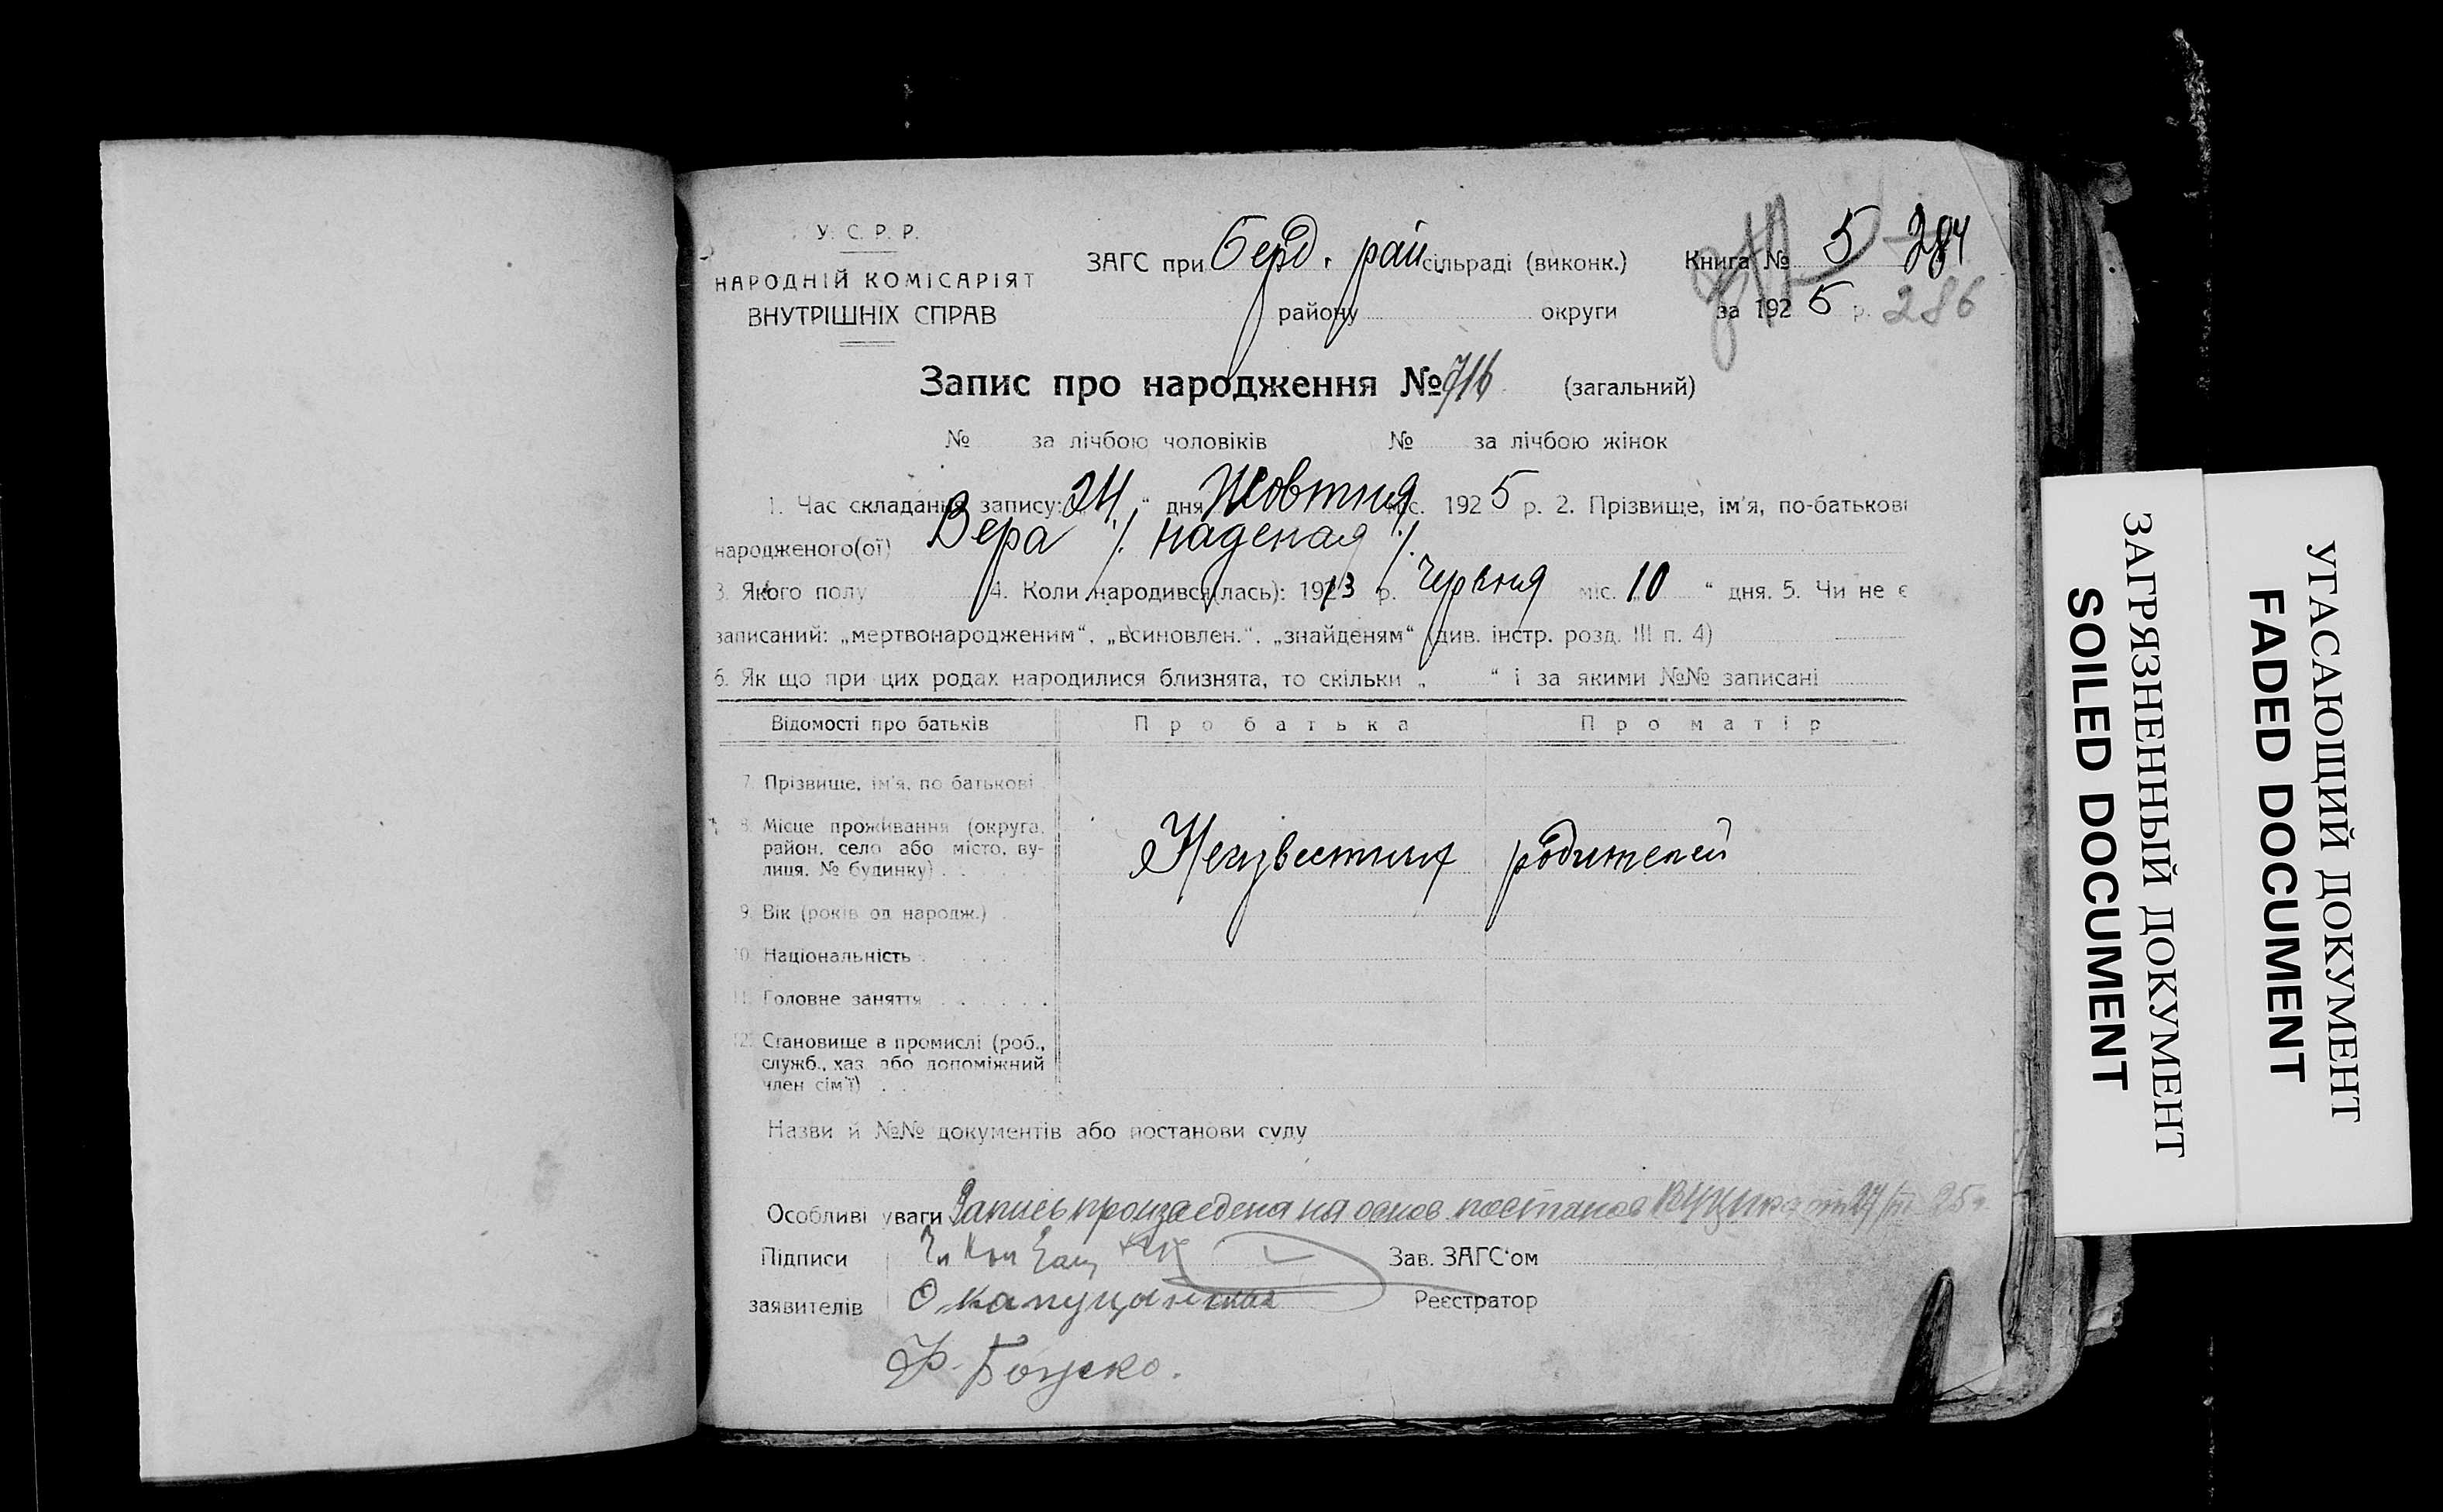 У. С. Р. Р.
НАРОДНІЙ КОМІСАРІЯТ
ВНУТРІШНІХ СПРАВ
ЗАГС при Берд. рай сільраді (виконк.)
району округи
Книга № 5 284
за 1925 р. 286
Запис про народження № 716 (загальний)
№ за лічбою чоловіків № за лічбою жінок
1. Час складання запису: 24 " дня Жовтня міс. 1925 р. 2. Прізвище, ім'я, по-батькові
народженого(ої) Вера /. наденая /.
3. Якого полу 4. Коли народився(лась): 1913 р. Червня міс. „10 " дня. 5. Чи не є
записаний: „мертвонародженим", „всиновлен.", „знайденям" (див. інстр. розд. III п. 4)
6. Як що при цих родах народилися близнята, то скільки „ " і за якими №№ записані
Відомості про батьків Про батька Про матір
7. Прізвище, ім'я, по батькові
8. Місце проживання (округа,
район, село або місто, ву-
лиця, № будинку)
Неизвестных родителей
9. Вік (років од народж.)
10. Національність
11. Головне заняття
12. Становище в промислі (роб.,
служб., хаз. або допоміжний
член сім'ї)
Назви й №№ документів або постанови суду
Особливі уваги Запись произведена на основ. постанов ВУЦИКа от 27/III 25 г.
Підписи Зав. ЗАГС'ом
заявителів О Капуцанская Реєстратор
Ф. Боцеко.
ЗАГРЯЗНЕННЫЙ ДОКУМЕНТ
SOILED DOCUMENT
УГАСАЮЩИЙ ДОКУМЕНТ
FADED DOCUMENT